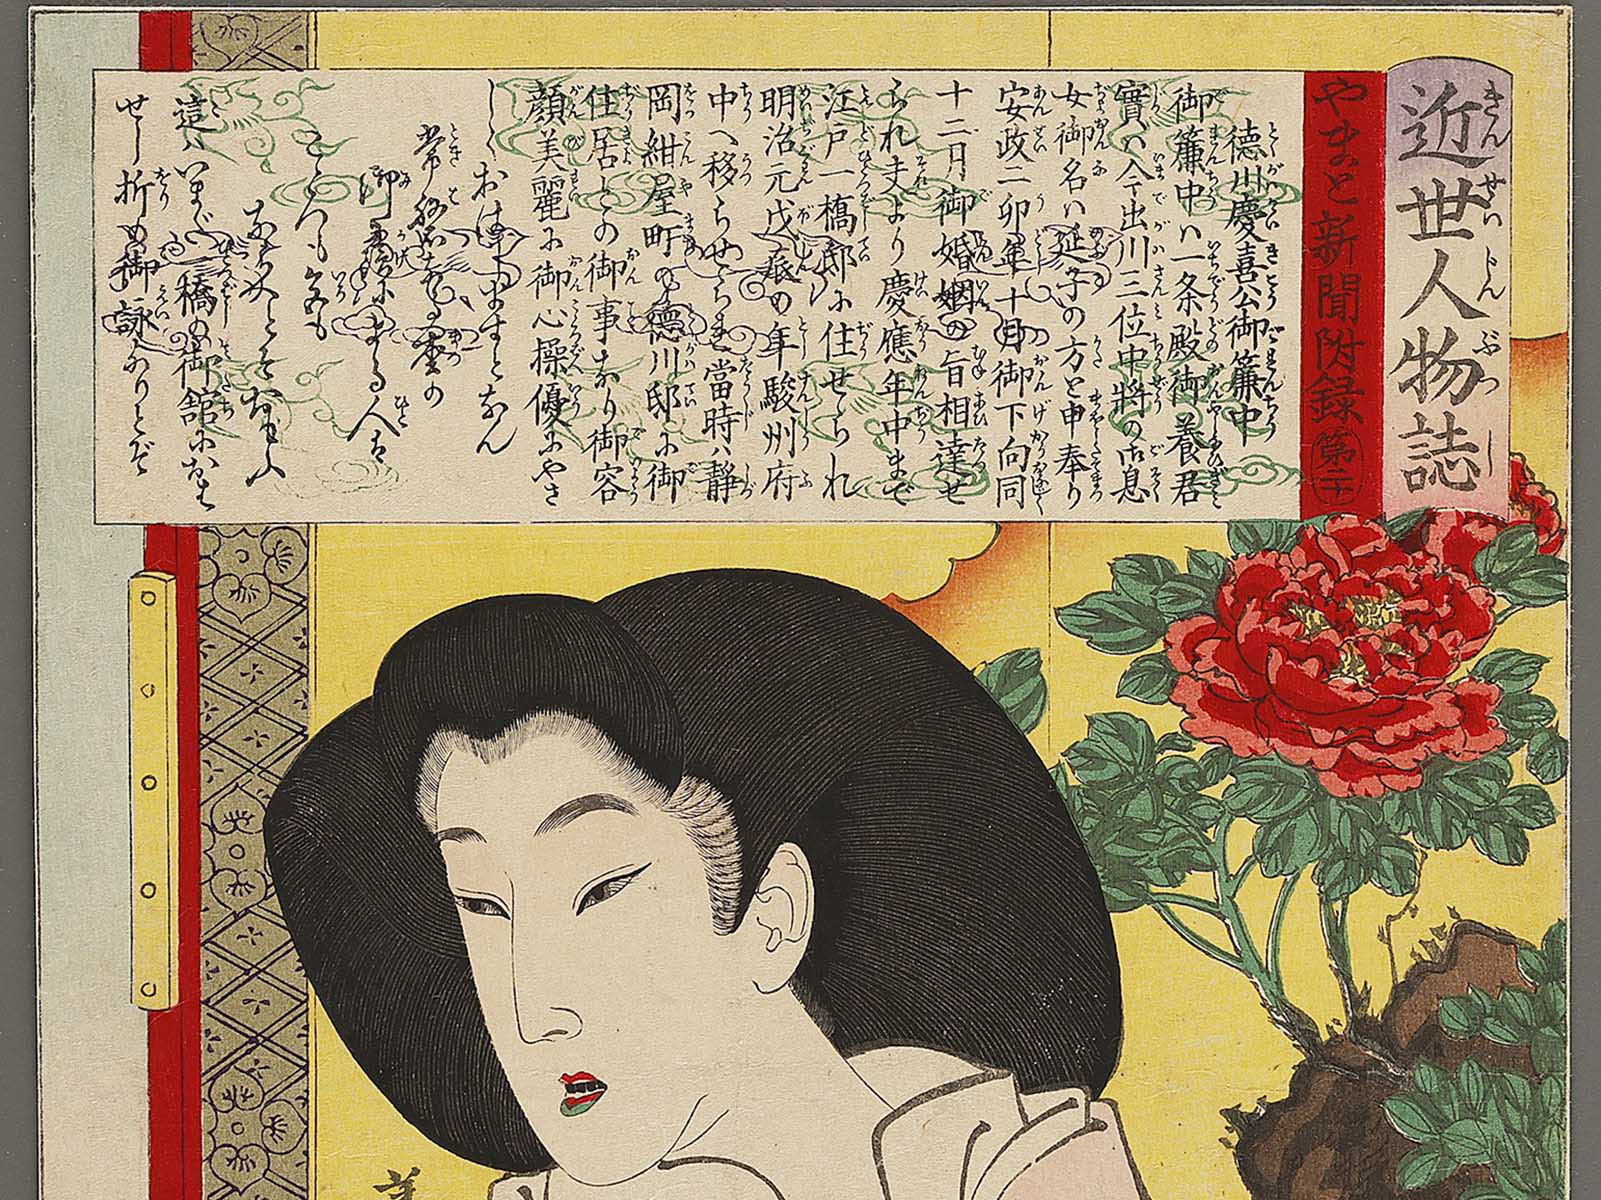 近世人物誌
やまと新聞附録第二十
徳川慶喜公御簾中
御簾中ハ一条殿御養君
實ハ今出川三位中將の御息
女御名ハ延子の方と申奉り
安政二卯年十月御下向同
十二月御婚姻の旨相達せ
られ夫より慶應年中まで
江戸一橋邸に住せられ
明治元戊辰の年駿州府
中へ移らせられ當時ハ静
岡紺屋町の徳川邸に御
住居との御事なり御容
顔美麗に御心操優にやさ
しくおはしますとなん
常磐なる松の
御まる人は
こゝろも
這ハいまだ一橋の御舘におはせし折の御詠なりとぞ